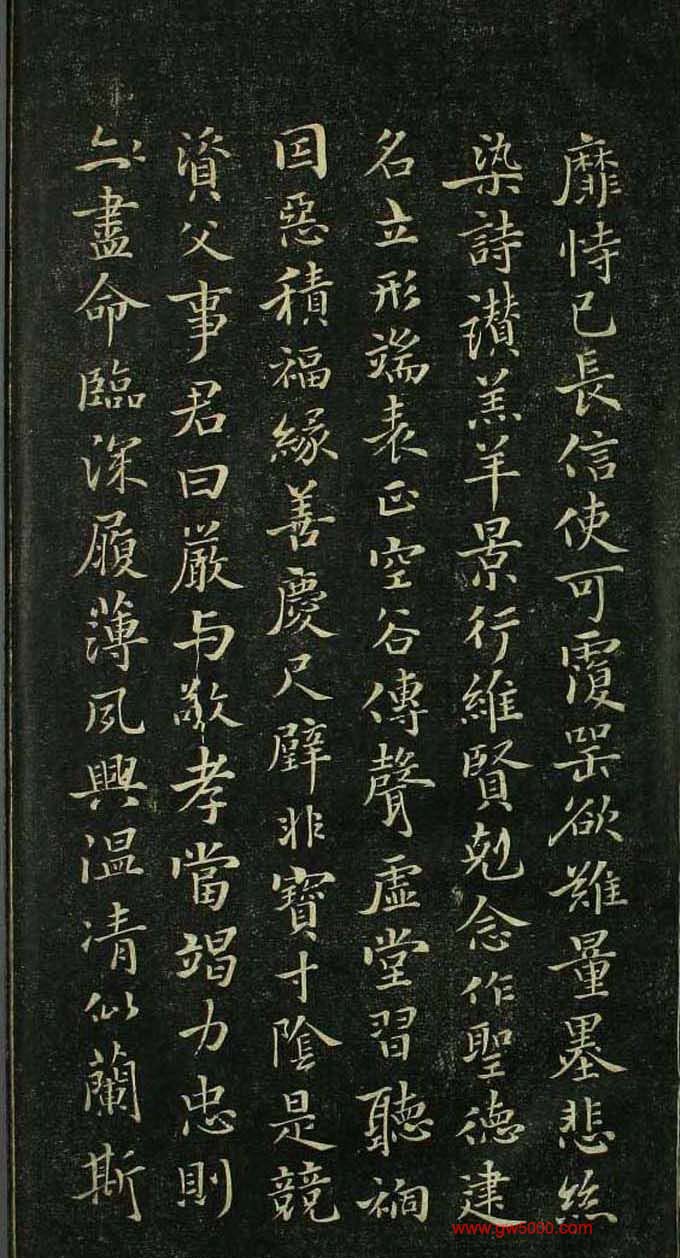 靡恃己長信使可覆器欲難量墨悲絲
染詩讚羔羊景行維賢剋念作聖德建
名立形端表正空谷傳聲虛堂習聽禍
因惡積福緣善慶尺璧非寶寸陰是競
資父事君曰嚴與敬孝當竭力忠則
盡命臨深履薄夙興溫凊似蘭斯
www.gw5000.com